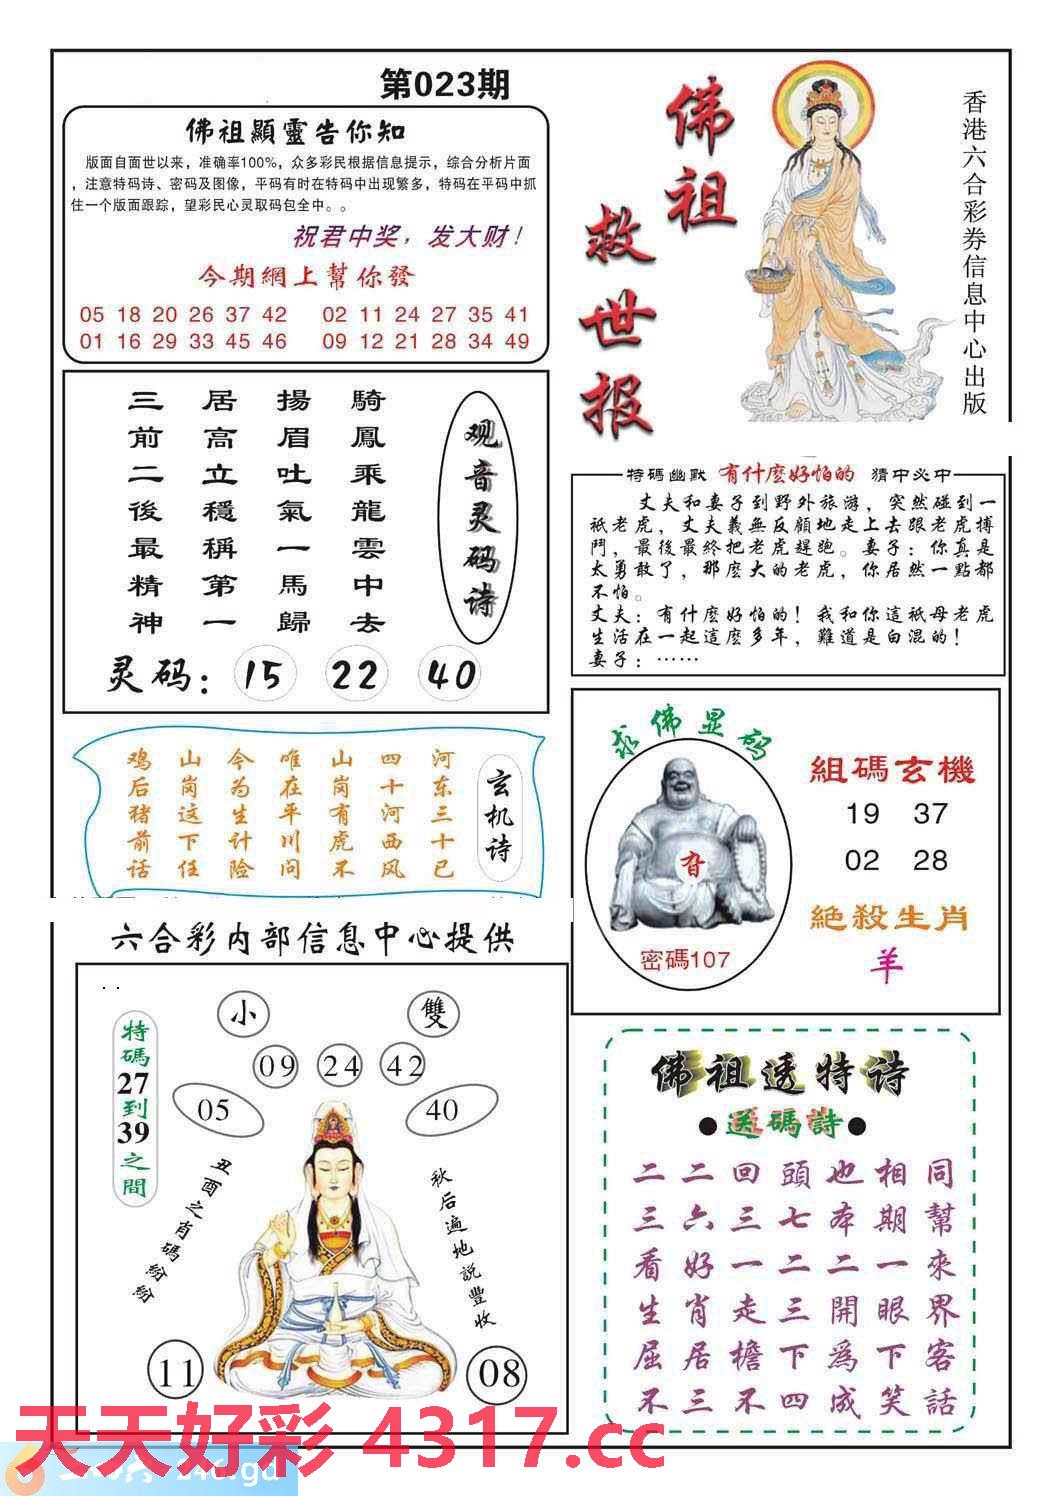 第023期
佛祖顯靈告你知
版面自面世以来，准确率100%，众多彩民根据信息提示，综合分析片面
，注意特码诗、密码及图像，平码有时在特码中出现繁多，特码在平码中抓
住一个版面跟踪，望彩民心灵取码包全中。。
祝君中奖，发大财！
今期網上幫你發
05 18 20 26 37 42 02 11 24 27 35 41
01 16 29 33 45 46 09 12 21 28 34 49
佛祖
救世报
香港六合彩券信息中心出版
观音灵码诗
騎鳳乘龍雲中去
揚眉吐氣一馬歸
居高立穩稱第一
三前二後最精神
灵码：15 22 40
特碼幽默 有什麼好怕的 猜中必中
丈夫和妻子到野外旅游，突然碰到一
祇老虎，丈夫義無反顧地走上去跟老虎搏
鬥，最後最終把老虎趕跑。妻子：你真是
太勇敢了，那麼大的老虎，你居然一點都
不怕。
丈夫：有什麼好怕的！我和你這祇母老虎
生活在一起這麼多年，難道是白混的！
妻子：……
玄机诗
河东三十已
四十河西风
山岗有虎不
唯在平川问
今为生计险
山岗这下任
鸡后猪前话
求佛显码
密碼107
組碼玄機
19 37
02 28
絶殺生肖
羊
六合彩内部信息中心提供
小 雙
09 24 42
05 40
特碼27到39之間
丑酉之肖碼紛紛
秋后遍地説豐收
11 08
佛祖透特诗
●送碼詩●
同幫來界客話
相期一眼下笑
也本二開為成
頭七二三下四
回三一走檐不
二六好肖居三
二三看生屈不
天天好彩 4317.cc
246.gd